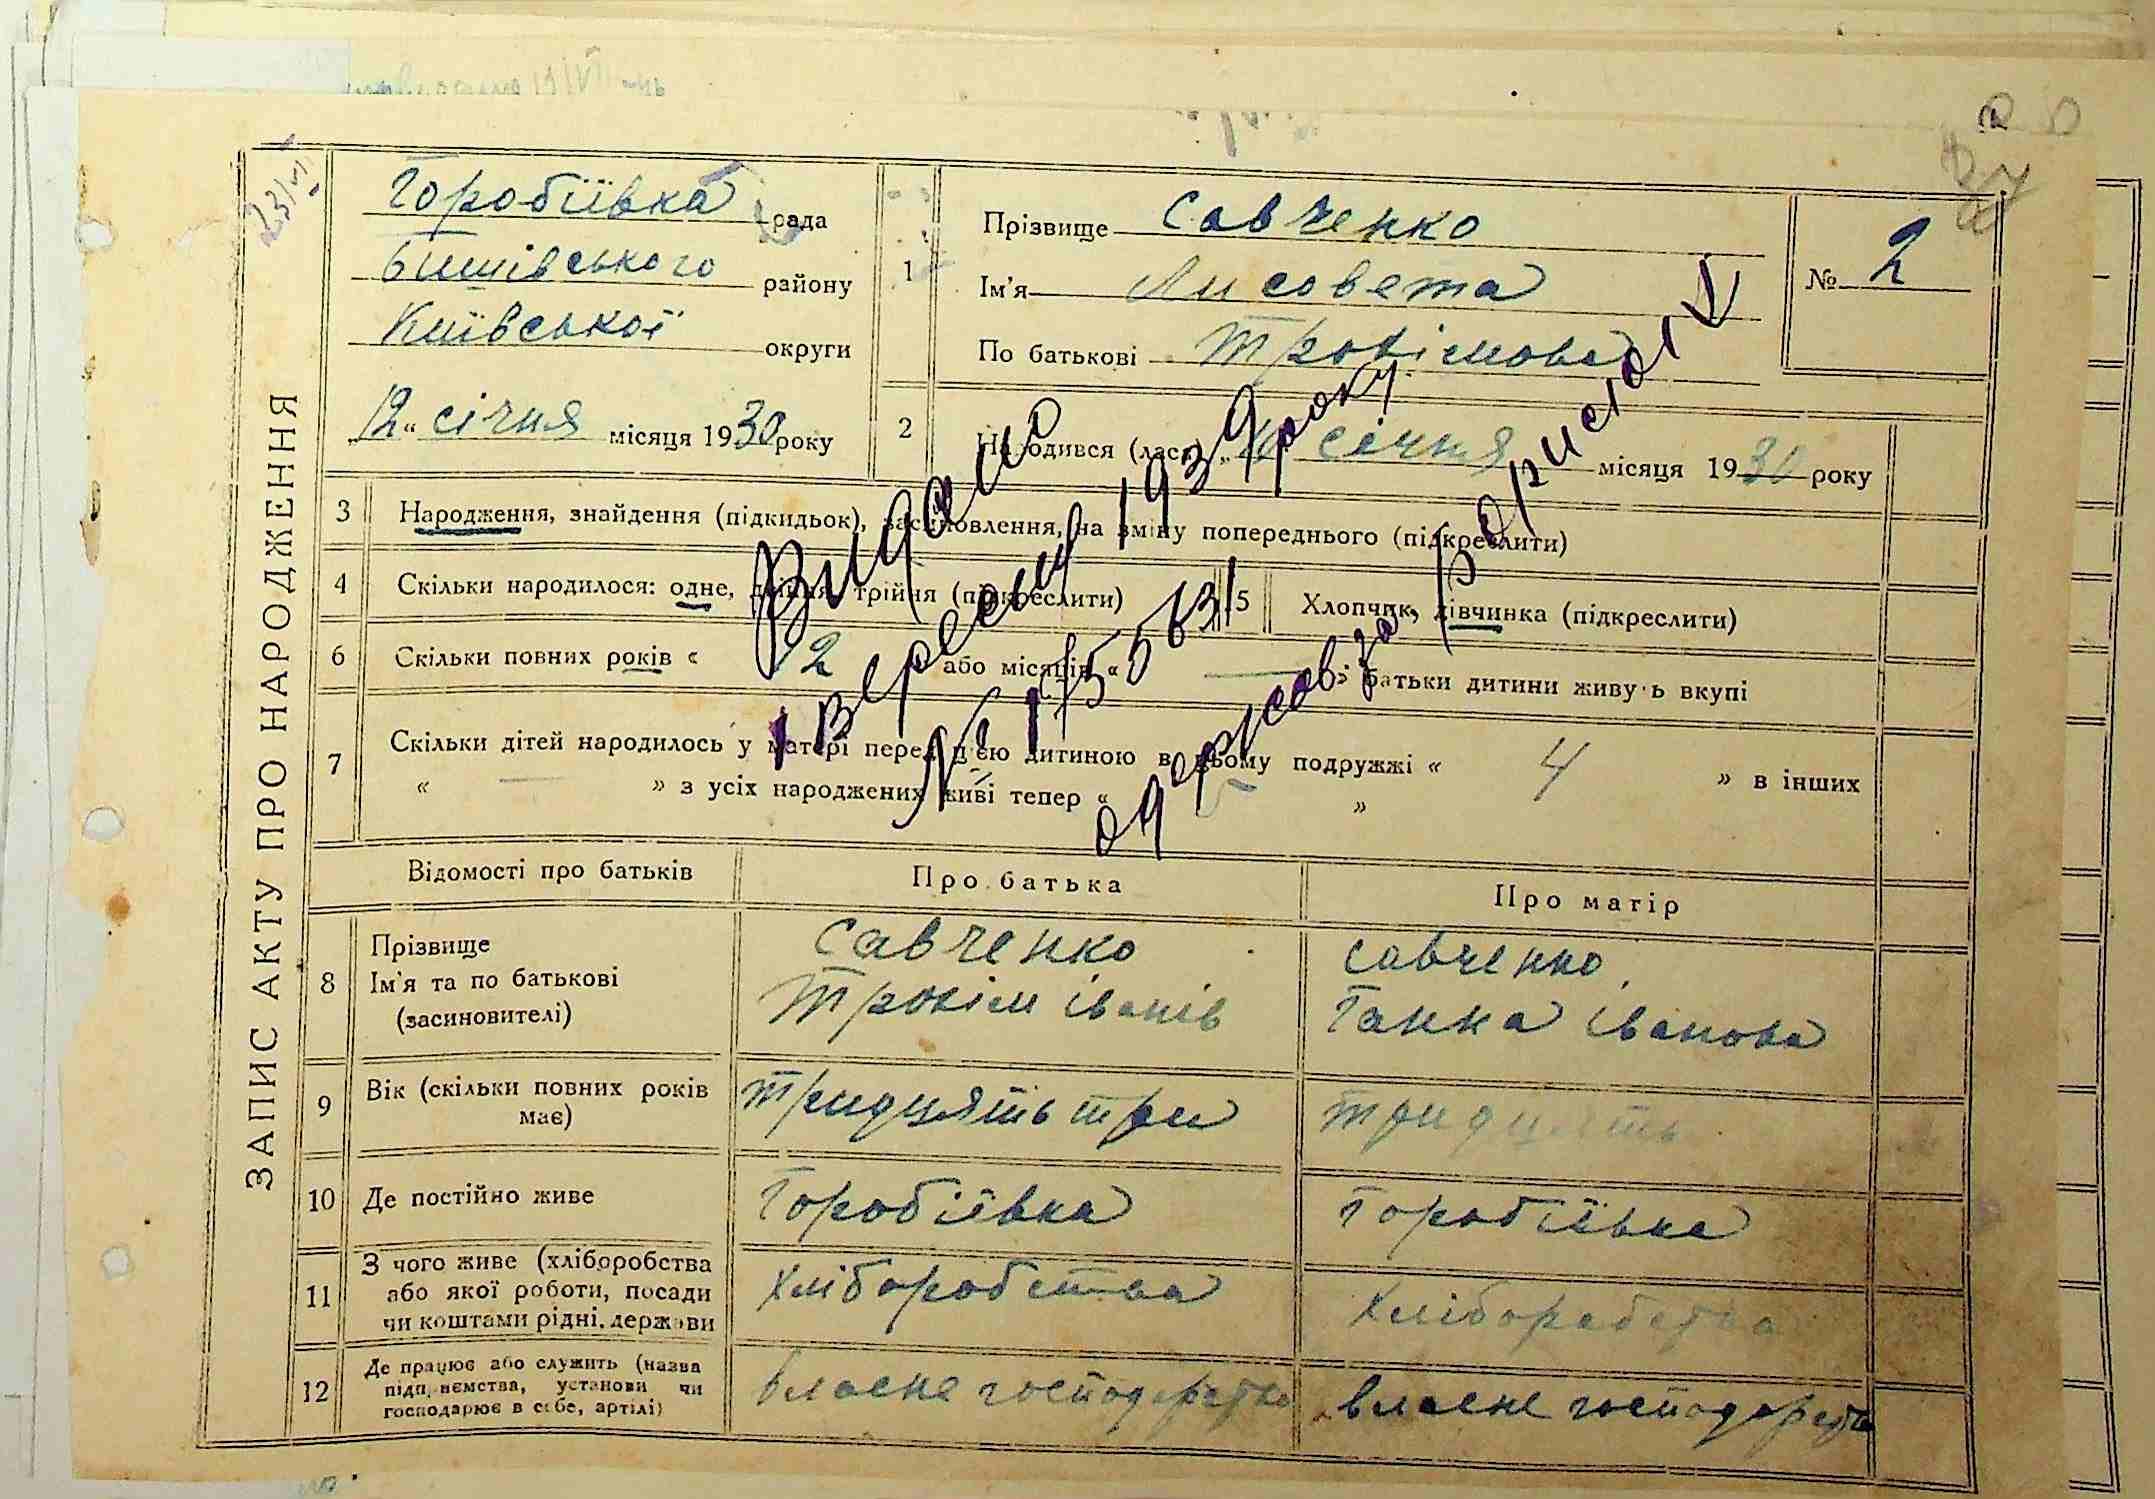 ЗАПИС АКТУ ПРО НАРОДЖЕННЯ
Горобіївка рада
Бишівського району
Київської округи
„12“ січня місяця 1930 року
1 Прізвище Савченко
Ім'я Лисовета
По батькові Трохімова
№ 2
2 Народився (лась) „10 січня місяця 1930 року
3 Народження, знайдення (підкидьок), засиновлення, на зміну попереднього (підкреслити)
4 Скільки народилося: одне, двійня, трійня (підкреслити)
5 Хлопчик, дівчинка (підкреслити)
6 Скільки повних років « 12 або місяців « — » батьки дитини живуть вкупі
7 Скільки дітей народилось у матері перед цією дитиною в цьому подружжі « 4 » в інших
« — » з усіх народжених живі тепер « 5 »
Видано
1 вересня 1939 року
№
одержав за
Відомості про батьків Про батька Про матір
8 Прізвище
Ім'я та по батькові
(засиновителі)
Савченко
Трохім іванів
Савченко
Ганна іванова
9 Вік (скільки повних років
має)
тридцять три
тридцять
10 Де постійно живе
Горобіївка
Горобіївка
11 З чого живе (хліборобства
або якої роботи, посади
чи коштами рідні, держави
хліборобства
хліборобства
12 Де працює або служить (назва
підприємства, установи чи
господарює в себе, артілі)
власне господарство
власне господарство